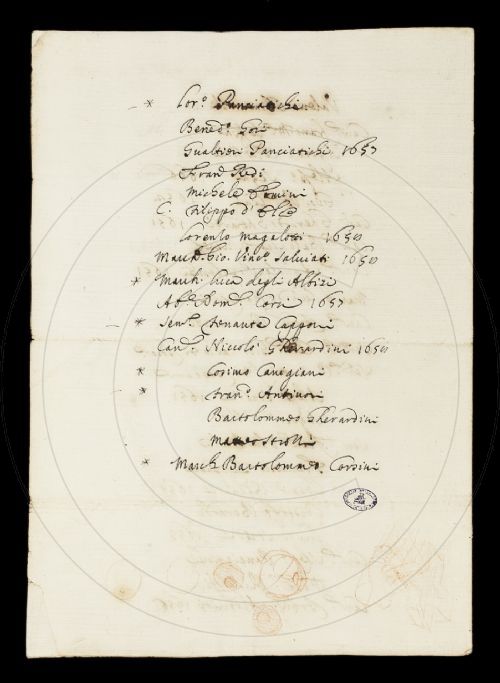 * Lor.° Panciatichi
Bened.° Gori
Gualtieri Panciatichi 1657
Fran.° Redi
Michele Ermini
C. Filippo d'Elci
Lorenzo Magalotti 1650
March. Gio. Vinc.° Salviati 1650
* March. Luca degli Albizi
Ab.e Dom.° Corsi 1657
* Sen.r Ferrante Capponi
Can.° Niccolò Gherardini 1650
* Cosimo Canigiani
* Fran.° Antinori
Bartolommeo Gherardini
Matteo Strozzi
* March. Bartolommeo Corsini